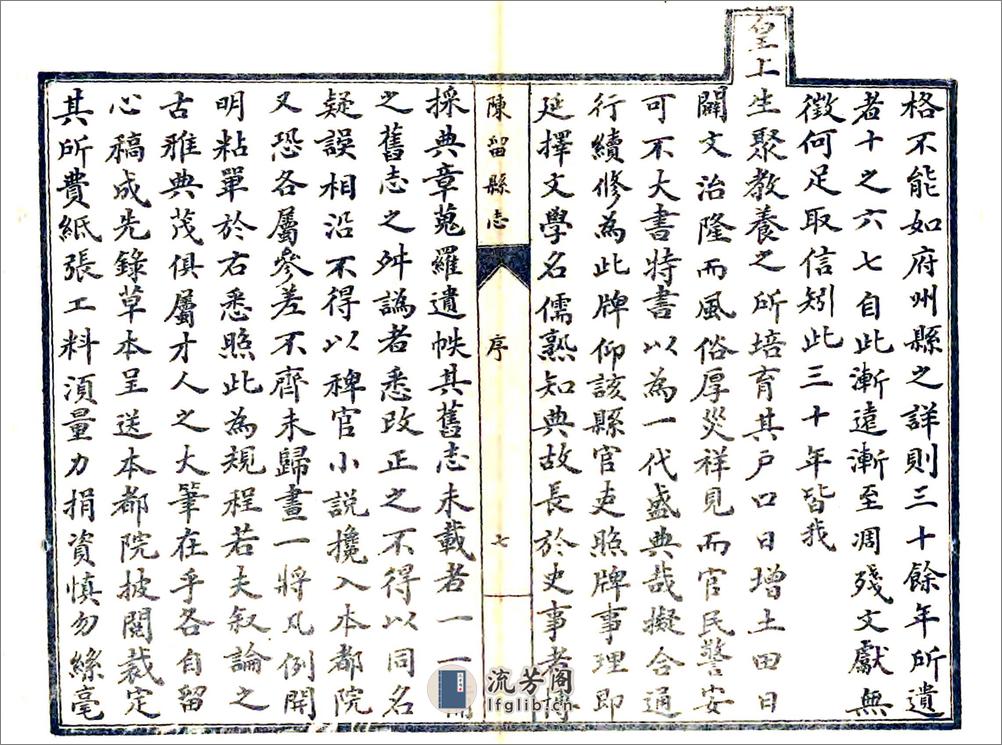 格不能如府州縣之詳則三十餘年所遺
者十之六七自此漸遠漸至凋殘文獻無
徵何足取信矧此三十年皆我
皇上生聚教養之所培育其戶口日增土田日
闢文治隆而風俗厚災祥見而官民警安
可不大書特書以為一代盛典哉擬合通
行續修為此牌仰該縣官吏照牌事理即
延擇文學名儒熟知典故長於史事者
陳留縣志
序
七
採典章蒐羅遺帙其舊志未載者一一
之舊志之舛譌者悉改正之不得以同名
疑誤相沿不得以稗官小說攙入本都院
又恐各屬參差不齊未歸畫一將凡例開
明粘單於右悉照此為規程若夫叙論之
古雅典茂俱屬才人之大筆在乎各自留
心稿成先錄草本呈送本都院披閱裁定
其所費紙張工料須量力捐資慎勿絲毫
流芳閣
lfglib.cn